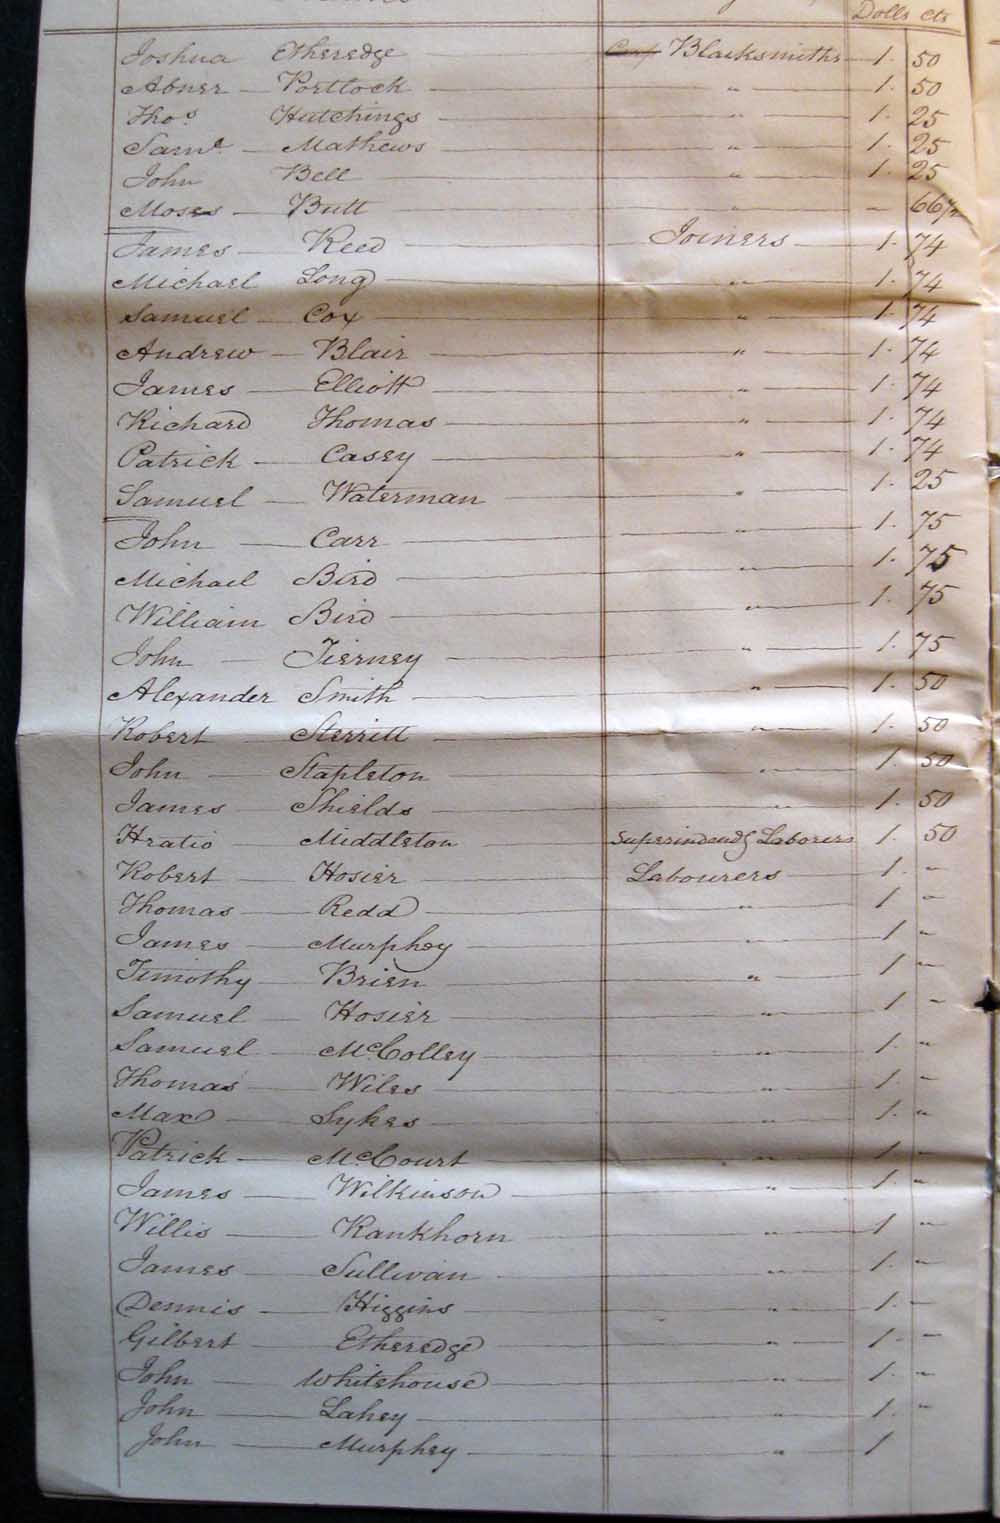 Dolls cts
Joshua Etheredge Blacksmiths 1. 50
Abner Portlock " 1. 50
Thos Hutchings " 1. 25
Saml Mathews " 1. 25
John Bell " 1. 25
Moses Butt " - 66
James Reed Joiners 1. 74
Michael Long " 1. 74
Samuel Cox " 1. 74
Andrew Blair " 1. 74
James Elliott " 1. 74
Richard Thomas " 1. 74
Patrick Casey " 1. 74
Samuel Waterman " 1. 25
John Carr " 1. 75
Michael Bird " 1. 75
William Bird " 1. 75
John Tierney " 1. 75
Alexander Smith " 1. 50
Robert Sterritt " 1. 50
John Stapleton " 1. 50
James Shields " 1. 50
Hratio Middleton Laborers 1. 50
Robert Hosier Labourers 1. "
Thomas Redd " 1 "
James Murphey " 1 "
Timothy Brien " 1 "
Samuel Hosier " 1 "
Samuel McColley " 1. "
Thomas Wiles " 1. "
Max Sykes " 1. "
Patrick McCourt " 1 "
James Wilkinson " 1. "
Willis Rankhorn " 1 "
James Sullivan " 1. "
Dennis Higgins " 1. "
Gilbert Etheredge " 1. "
John Whitehouse " 1. "
John Lahey " 1. "
John Murphey " 1